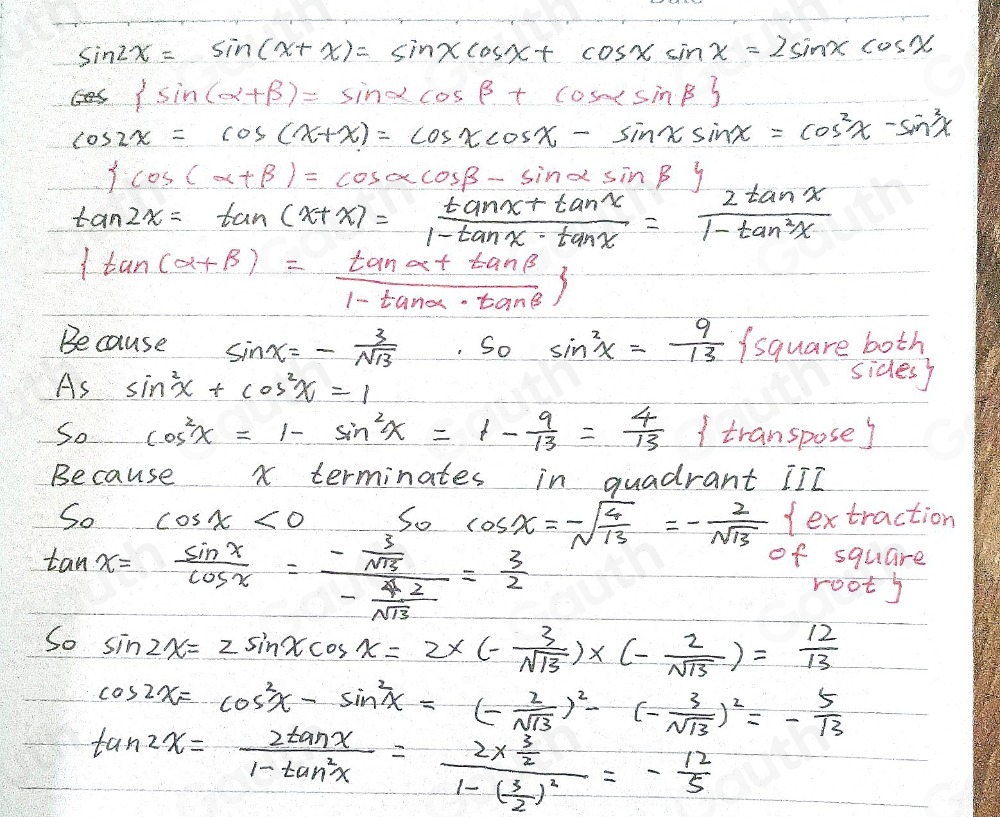 sin2x = sin(x+x) = sinx cosx + cosx sinx = 2sinx cosx
{sin(α+β) = sinα cosβ + cosα sinβ}
cos2x = cos(x+x) = cosx cosx - sinx sinx = cos²x - sin²x
{cos(α+β) = cosα cosβ - sinα sinβ}
tan2x = tan(x+x) = (tanx + tanx)/(1 - tanx · tanx) = 2tanx/(1 - tan²x)
{tan(α+β) = (tanα + tanβ)/(1 - tanα · tanβ)}
Because sinx = - 3/√13 . So sin²x = 9/13 {square both
sides}
As sin²x + cos²x = 1
So cos²x = 1 - sin²x = 1 - 9/13 = 4/13 {transpose}
Because x terminates in quadrant III
So cosx < 0 So cosx = -√(4/13) = - 2/√13 {extraction
of square
root}
tanx = sinx/cosx = (- 3/√13)/(- 2/√13) = 3/2
So sin2x = 2sinx cosx = 2×(- 3/√13)×(- 2/√13) = 12/13
cos2x = cos²x - sin²x = (- 2/√13)² - (- 3/√13)² = - 5/13
tan2x = 2tanx/(1 - tan²x) = (2 × 3/2)/(1 - (3/2)²) = - 12/5
Gauth